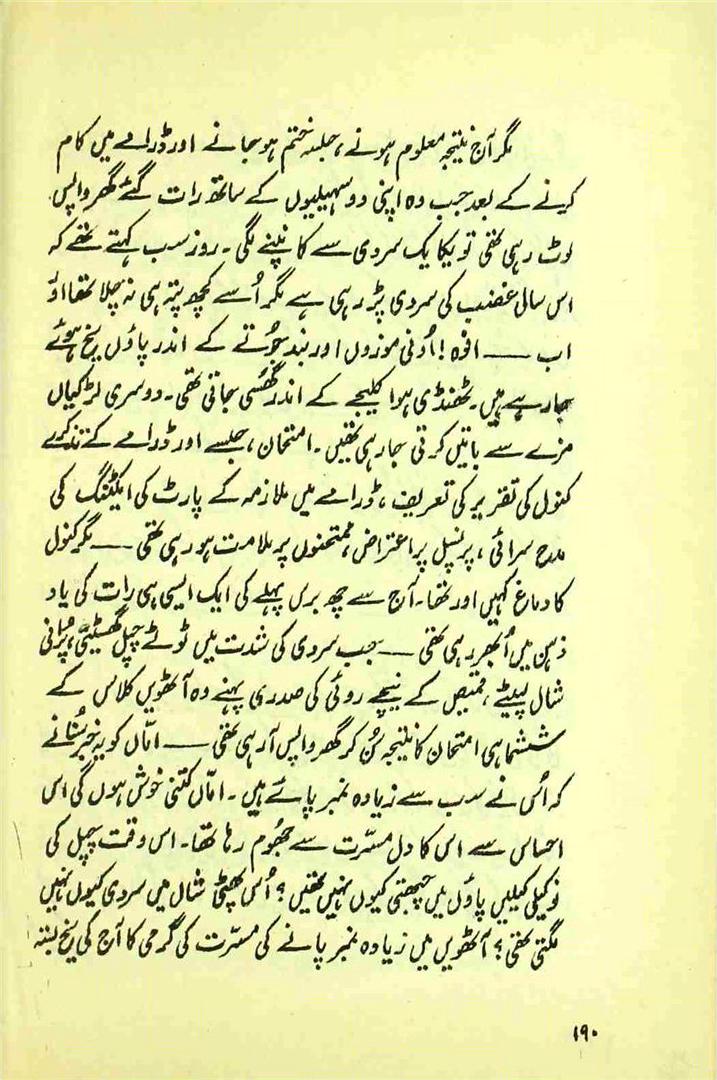 مگر آج نتیجہ معلوم ہونے، جلسہ ختم ہو جانے اور ڈرامے میں کام
کرنے کے بعد جب وہ اپنی دو سہیلیوں کے ساتھ رات گئے گھر واپس
لوٹ رہی تھی تو یکایک سردی سے کانپنے لگی۔ روز سب کہتے تھے کہ
اس سال غضب کی سردی پڑ رہی ہے مگر اُسے کچھ پتہ ہی نہ چلا تھا اور
اب — افوہ! اُونی موزوں اور بند جُوتے کے اندر پاؤں یخ ہوئے
جا رہے ہیں۔ ٹھنڈی ہوا کلیجے کے اندر گھُسی جاتی تھی۔ دوسری لڑکیاں
مزے سے باتیں کرتی جا رہی تھیں۔ امتحان، جلسے اور ڈرامے کے تذکرے
کنول کی تقریر کی تعریف، ڈرامے میں ملازمہ کے پارٹ کی ایکٹنگ کی
مدح سرائی، پرنسپل پر اعتراض، ممتحنوں پر ملامت ہو رہی تھی — مگر کنول
کا دماغ کہیں اور تھا۔ آج سے چھ برس پہلے کی ایک ایسی ہی رات کی یاد
ذہن میں اُبھر رہی تھی — جب سردی کی شدت میں ٹوٹے چپل گھسیٹتی، پُرانی
شال لپیٹے، قمیص کے نیچے روئی کی صدری پہنے وہ آٹھویں کلاس کے
ششماہی امتحان کا نتیجہ سُن کر گھر واپس آ رہی تھی — امّاں کو یہ خبر سُنانے
کہ اُس نے سب سے زیادہ نمبر پائے ہیں۔ امّاں کتنی خوش ہوں گی اس
احساس سے اس کا دل مسرّت سے جھُوم رہا تھا۔ اس وقت چپل کی
نوکیلی کیلیں پاؤں میں چبھتی کیوں نہیں تھیں؟ اُس پھٹی شال میں سردی کیوں نہیں
لگتی تھی؟ آٹھویں میں زیادہ نمبر پانے کی مسرّت کی گرمی کا آج کی یخ بستہ
۱۹۰